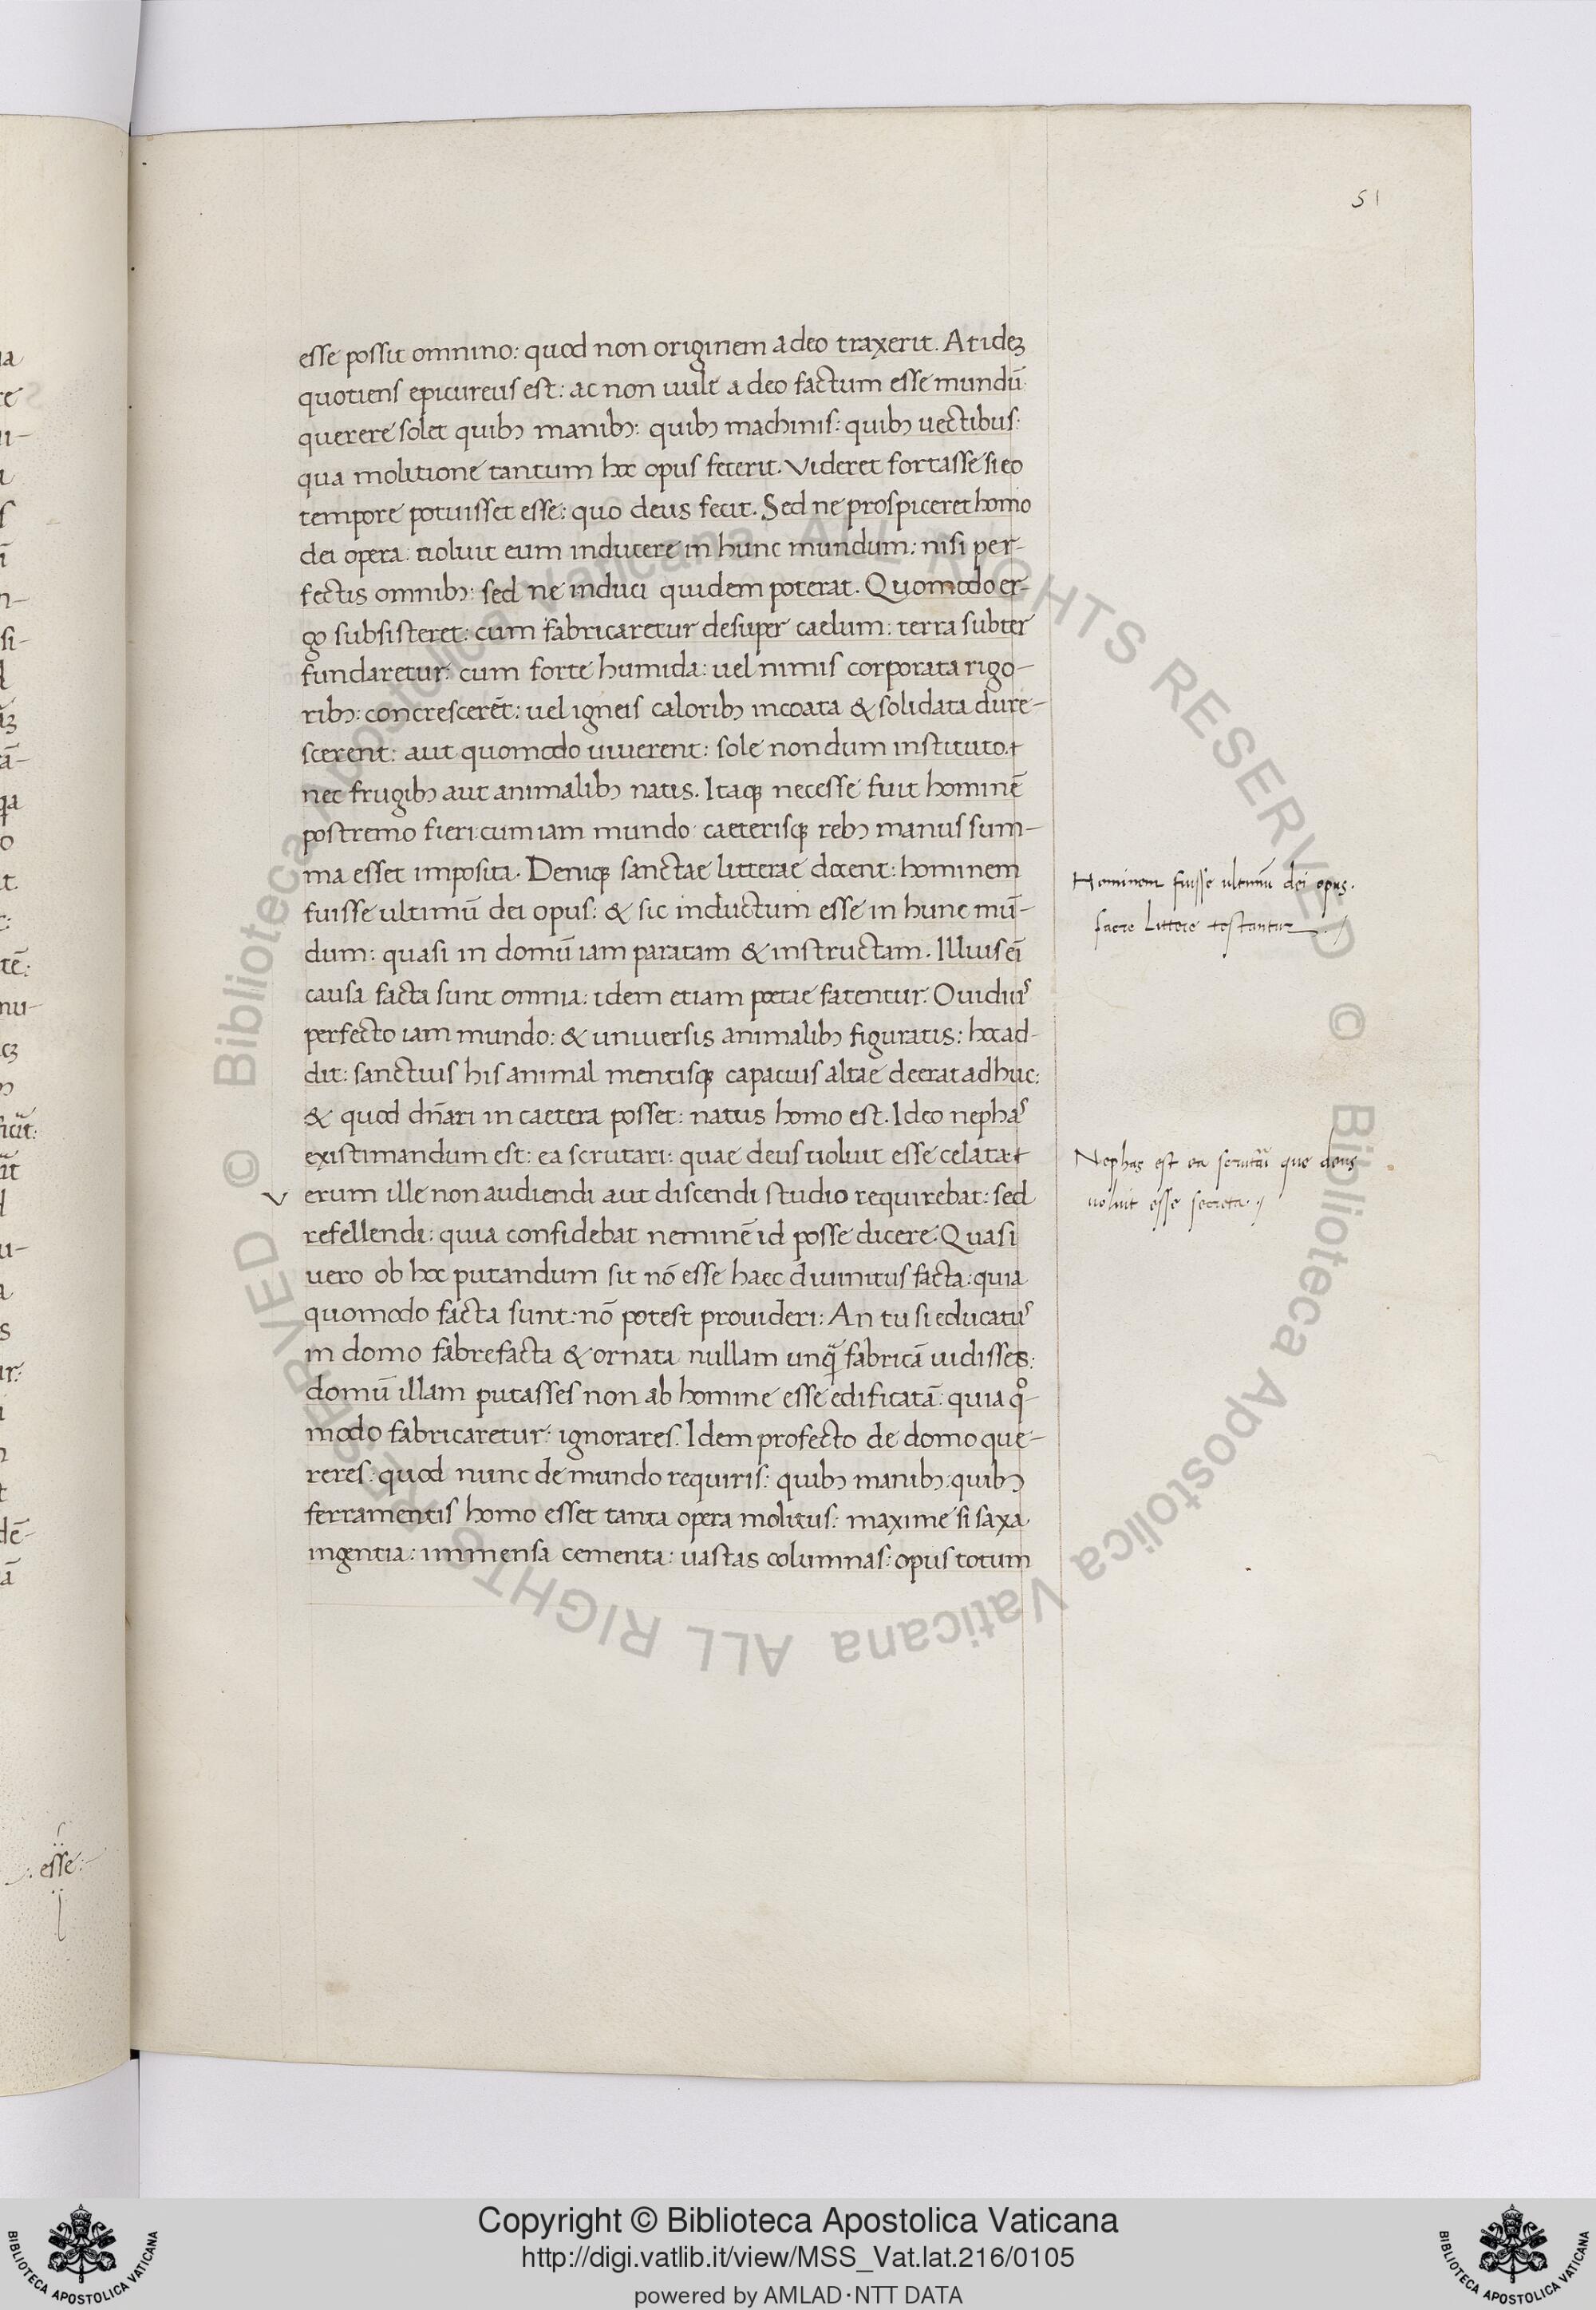 51
esse possit omnino: quod non originem a deo traxerit. At ideꝫ
quotiens epicureus est: ac non uult a deo factum esse mundū
querere solet quibꝯ manibꝯ: quibꝯ machinis: quibꝯ uectibus:
qua molitione tantum hoc opus fecerit. Videret fortasse si eo
tempore potuisset esse: quo deus fecit. Sed ne prospiceret homo
dei opera: noluit eum inducere in hunc mundum: nisi per-
fectis omnibꝯ: sed ne induci quidem poterat. Quomodo er-
go subsisteret: cum fabricaretur desuper caelum: terra subter
fundaretur: cum forte humida: uel nimis corporata rigo-
ribꝯ: concrescerēt: uel igneis caloribꝯ incoata & solidata dure-
scerent: aut quomodo uiuerent: sole nondum instituto:
nec frugibꝯ aut animalibꝯ natis. Itaqꝫ necesse fuit hominē
postremo fieri cum iam mundo caeterisqꝫ rebꝯ manus sum-
ma esset imposita. Deniqꝫ sanctae litterae docent: hominem
fuisse ultimū dei opus: & sic inductum esse in hunc mū-
dum: quasi in domū iam paratam & instructam. Illius eī
causa facta sunt omnia: idem etiam poetae fatentur. Ouidius
perfecto iam mundo: & uniuersis animalibꝯ figuratis: hoc ad-
dit: sanctius his animal mentisqꝫ capacius altae deerat adhuc:
& quod dn̄ari in caetera posset: natus homo est. Ideo nephas
existimandum est: ea scrutari: quae deus uoluit esse celata:
V erum ille non audiendi aut discendi studio requirebat: sed
refellendi: quia confidebat neminē id posse dicere. Quasi
uero ob hoc putandum sit nō esse haec diuinitus facta: quia
quomodo facta sunt: nō potest prouideri: An tu si educatus
in domo fabrefacta & ornata nullam unq̄ fabricā uidisses:
domū illam putasses non ab homine esse edificatā: quia qͦ-
modo fabricaretur: ignorares. Idem profecto de domo que-
reres: quod nunc de mundo requiris: quibꝯ manibꝯ: quibꝯ
ferramentis homo esset tanta opera molitus: maxime si saxa
ingentia: immensa cementa: uastas columnas: opus totum
Hominem fuisse ultimū dei opus.
sacre littere testantur
Nephas est ea scrutari que deus
uoluit esse secreta.
esse:
© Biblioteca Apostolica Vaticana ALL RIGHTS RESERVED © Biblioteca Apostolica Vaticana ALL RIGHTS RESERVED
Copyright © Biblioteca Apostolica Vaticana
http://digi.vatlib.it/view/MSS_Vat.lat.216/0105
powered by AMLAD·NTT DATA
BIBLIOTECA APOSTOLICA VATICANA
BIBLIOTECA APOSTOLICA VATICANA